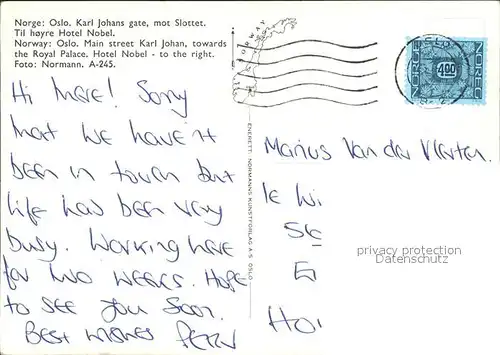 Norge: Oslo. Karl Johans gate, mot Slottet.
Til høyre Hotel Nobel.
Norway: Oslo. Main street Karl Johan, towards
the Royal Palace. Hotel Nobel - to the right.
Foto: Normann. A-245.
Hi there! Sorry
that we haven't
been in touch but
life has been very
busy. Working here
for two weeks. Hope
to see you soon.
Best wishes
ENERETT: NORMANNS KUNSTFORLAG A/S OSLO
NORWAY
NORGE
400
NOREG
Marius Van der
privacy protection
Datenschutz